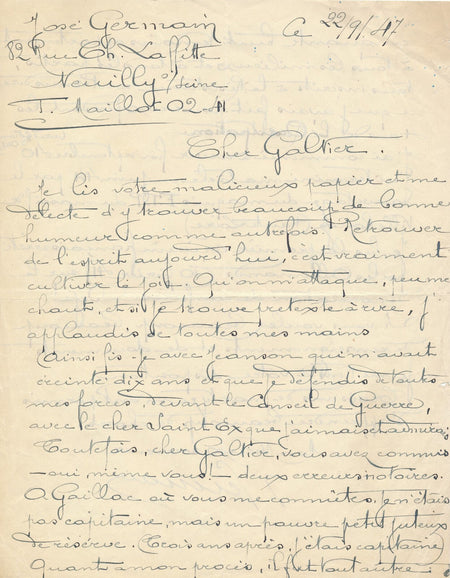 José Germain
82 Rue Ch. Laffitte
Neuilly s/Seine
T. Maillot 02-41
Ce 22/9/47
Cher Galtier.
Je lis votre malicieux papier et me
délecte d'y trouver beaucoup de bonne
humeur comme autrefois. Retrouver
de l'esprit aujourd'hui, c'est vraiment
cultiver le joie. Qu'on m'attaque, peu me
chaut, et si je trouve prétexte à rire, j'
applaudis de toutes mes mains
Ainsi fis-je avec Jeanson qui m'avait
éreinté dix ans et que je défendis de toutes
mes forces, devant le Conseil de Guerre,
avec le cher Saint Ex que j'aimais et admirais
Toutefois, cher Galtier, vous avez commis
- oui, même vous! - deux erreurs notoires.
A Gaillac où vous me connûtes. Je n'étais
pas capitaine, mais un pauvre petit juteux
de réserve. Trois ans après, j'étais capitaine
Quant à mon procès, il fut tout autre :